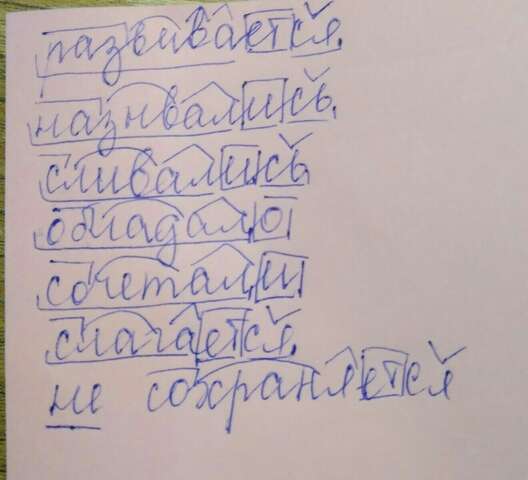 развивается.
назывались.
сливались
обладало
сочетали
слагается.
не сохраняется